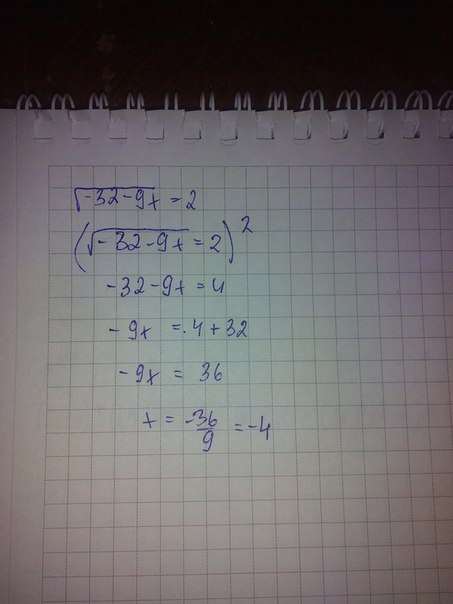 √-32-9x = 2
(√-32-9x = 2)²
-32-9x = 4
-9x = 4+32
-9x = 36
x = -36/9 = -4